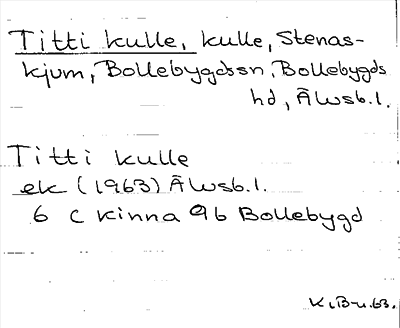 Titti kulle, kulle, Stenas-
kjum, Bollebygdssn, Bollebygds
hd, Älvsb.l.
Titti kulle
ek (1963) Älvsb.l.
6 C Kinna 9b Bollebygd
K.B-u.63.